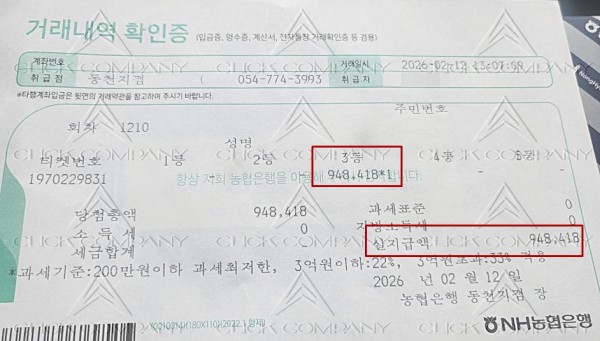 거래내역 확인증 (입금증, 영수증, 계산서, 전자통장 거래확인증 등 겸용)
계좌번호 거래일시 2026-02-12 13:07:08
취급점 동천지점 ( 054-774-3993 취급자
*타행계좌입금은 뒷면의 거래약관을 참고하여 주시기 바랍니다.
주민번호
회차 1210
성명
티켓번호 1등 2등 3등 4등 5등
1970229831 - - 948,418*1 - -
항상 저희 농협은행을 이용해
당첨총액 948,418 과세표준 0
소 득 세 0 지방소득세 0
세금합계 실지급액 948,418
*과세기준:200만원이하 과세최저한, 3억원이하:22%, 3억원초과:33% 적용
2026 년 02 월 12 일
농협은행 동천지점 장
(180X110)(2022.1 형제)
NH농협은행
CLICK COMPANY